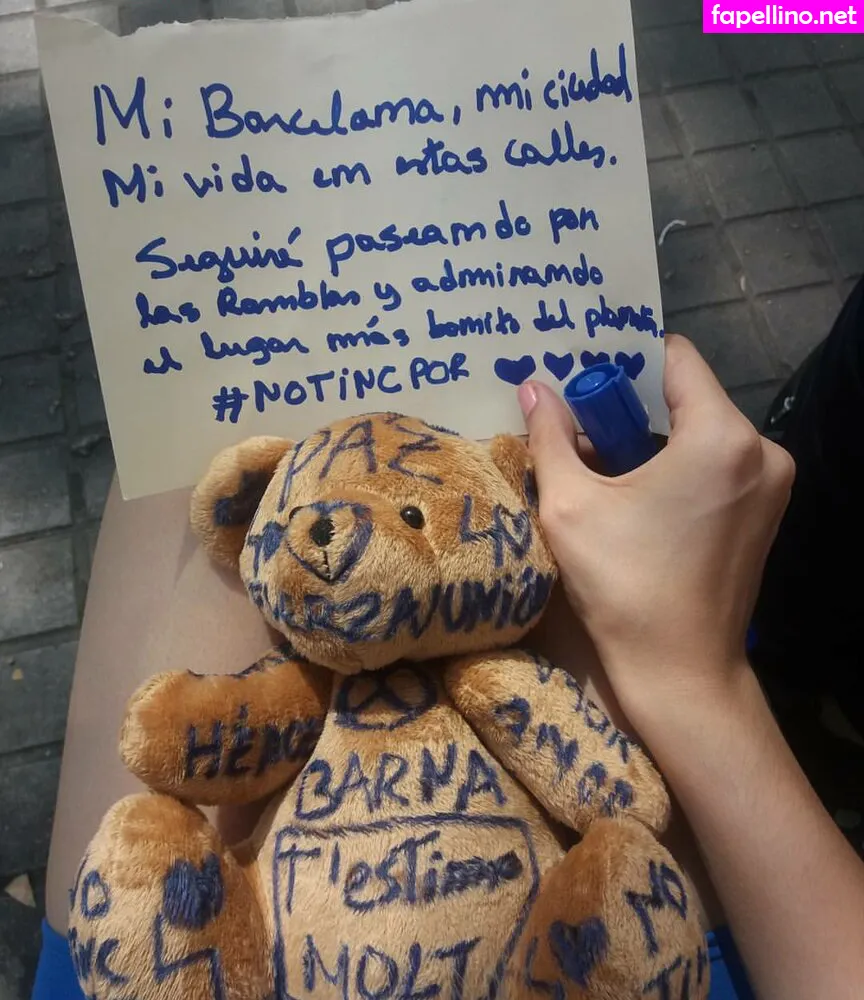 fapellino.net
Mi Barcelona, mi ciudad
Mi vida en estas calles.
Seguiré paseando por
las Ramblas y admirando
el lugar más bonito del planeta.
#NOTINCPOR
PAZ
FUERZA/UNIÓN
BARNA
T'estimo
MOLT
NO
NO